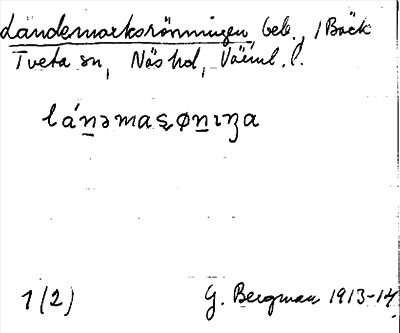 Ländemarksrönningen, beb., /Bäck
Tveta sn, Näs hd, Värml. l.
lán̲əmaʂøn̲ɩŋa
1 (2) G. Bergman 1913-14